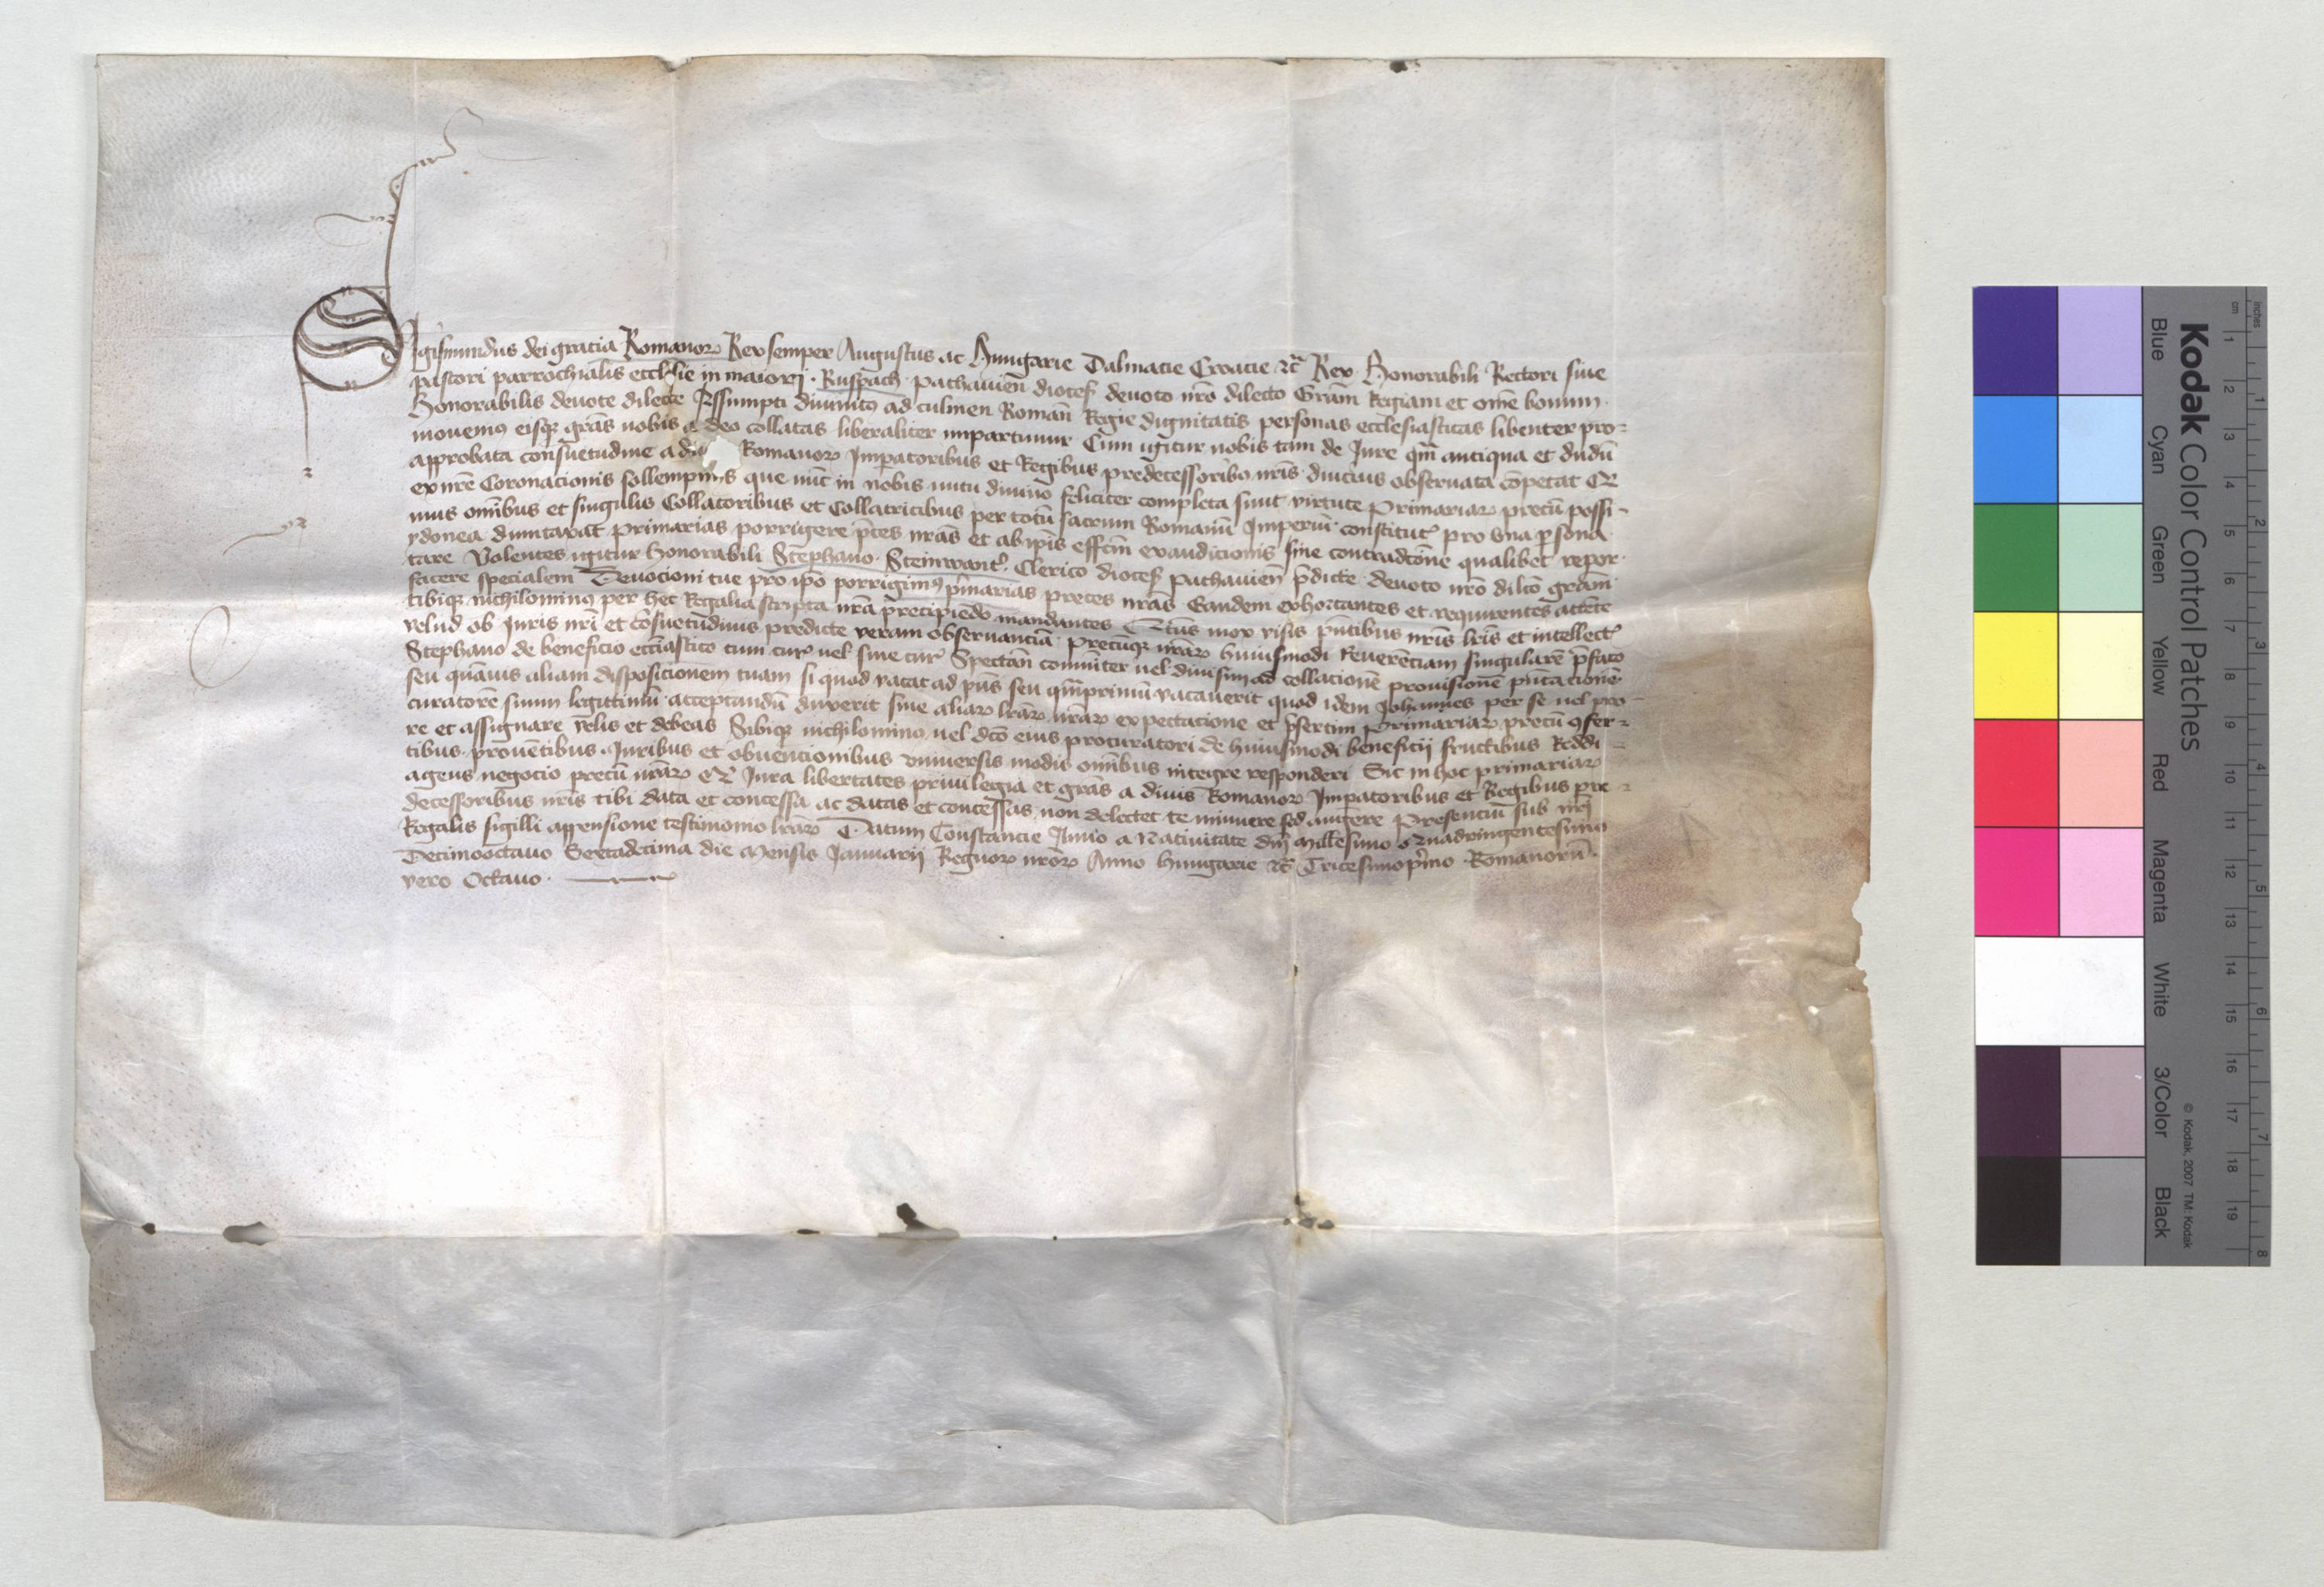 Sigismundus dei gratia Romanoꝝ Rex semper Augustus ac Hungarie Dalmacie Croacie ⁊c̃ Rex Honorabili Rectori siue
pastori parrochialis ecclesie in maiorj Ruspach patauien̄ dioces̄ deuoto nr̄o dilecto Grām Regiam et om̄e bonum
Honorabilis deuote dilecte Assumpti diuinitꝰ ad culmen Roman̄ Regie dignitatis personas ecclesiasticas libenter pro-
mouemꝰ eisqꝫ grās nobis a deo collatas liberaliter impartimur Cum igitur nobis tam de Jure qm̄ antiqua et dudū
approbata consuetudine a di Romanoꝝ Imperatoribus et Regibus predecessoribꝰ nr̄is diucius obseruata cōpetat Et
ex nr̄e Coronacionis sollempnijs que nūc in nobis nutu diuino feliciter completa sunt virtute Primariaꝝ precū possi-
mus om̄ibus et singulis Collatoribus et Collatricibus per totū sacrum Romanū Imperiū constitutꝭ pro vna ꝑsona
ydonea dumtaxat primarias porrigere p̄ces nr̄as et ab ip̄is effc̄m exaudicionis sine contradcōne qualibet repor-
tare Volentes igitur honorabili Stephano Steinwantꝭ Clerico dioces̄ patauien̄ p̄dicte deuoto nr̄o dilc̄o grām
facere specialem Deuocioni tue pro ip̄o porrigimꝰ p̄marias preces nr̄as Eandem exhortantes et requirentes attēte
tibiqꝫ nichilominꝰ per hec Regalia scripta nr̄a precipiēdo mandantes Qt̄us mox visis p̄ntibus nr̄is lr̄is et intellectꝭ
velud ob Juris nr̄i et cōsuetudinis predicte veram obseruanciā precūqꝫ nr̄aꝝ huiusmodi Reuerenciam singularē p̄fato
Stephano de beneficio ecc̄iastico cum curꝭ uel sine curꝭ Spectan̄ cōmuniter uel diuisim ad collacionē prouisionē p̄ntacionē
seu qūauis aliam disposicionem tuam si quod vacat ad p̄ns seu qm̄primū vacauerit quod idem Johannes per se uel pro-
curatorē suum legittimū acceptandū duxerit sine aliaꝝ lr̄aꝝ nr̄aꝝ expectacione et p̄sertim Primariaꝝ precū ꝯfer-
re et assignare velis et debeas Sibiqꝫ nichilominꝰ uel dc̄o eius procuratori de huiusmodi beneficij fructibus Reddi-
tibus prouētibus Juribus et obuencionibus vniuersis modis om̄ibus integre responderi Sic in hoc primariaꝝ
agens negocio precū nr̄aꝝ Et Jura libertates priuilegia et grās a diuis Romanoꝝ Imperatoribus et Regibus pre-
decessoribus nr̄is tibi data et concessa ac datas et concessas non delectet te minuere sed augere Presenciū sub nr̄j
Regalis sigilli appensione testimonio lr̄aꝝ Datum Constancie Anno a Natiuitate dn̄j Millesimo Quadringentesimo
Decimooctauo Sextadecima die Mensis Januarij Regnoꝝ nr̄oꝝ Anno Hungarie ⁊c̃ Tricesimoprimo Romanorū
vero Octauo
Kodak Color Control Patches
Blue Cyan Green Yellow Red Magenta White 3/Color Black
© Kodak, 2007 TM: Kodak
cm 1 2 3 4 5 6 7 8 9 10 11 12 13 14 15 16 17 18 19
inches 1 2 3 4 5 6 7 8